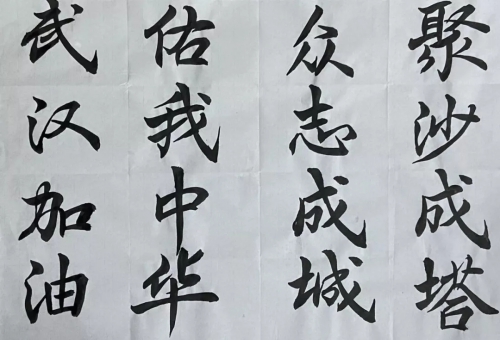 聚沙成塔
众志成城
佑我中华
武汉加油